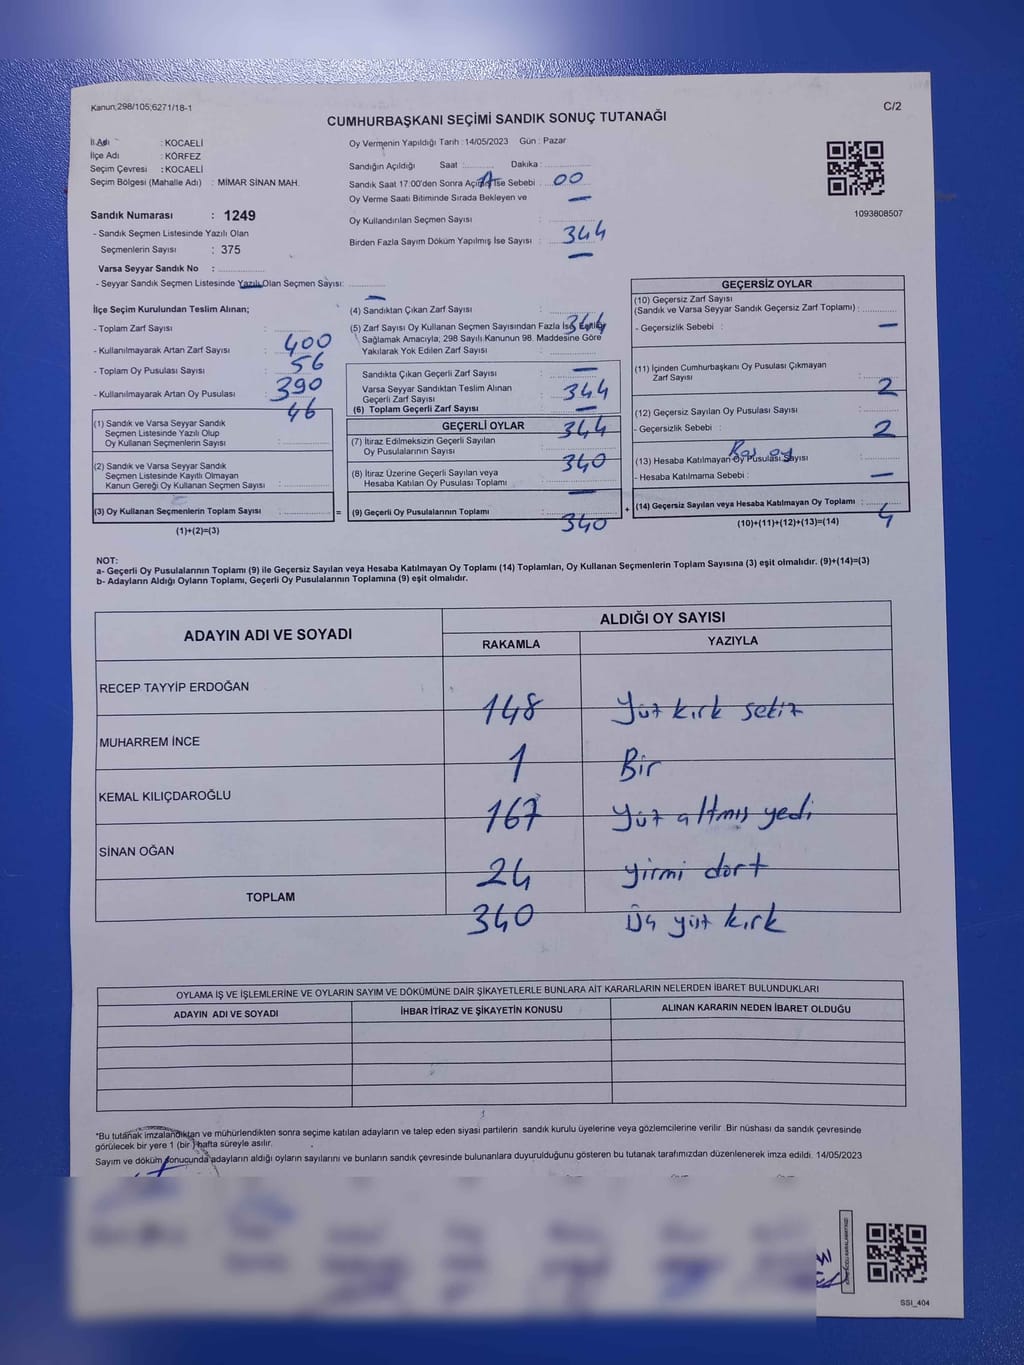 Kanun;298/105;6271/18-1
C/2
CUMHURBAŞKANI SEÇİMİ SANDIK SONUÇ TUTANAĞI
İl Adı : KOCAELİ
İlçe Adı : KÖRFEZ
Seçim Çevresi : KOCAELİ
Seçim Bölgesi (Mahalle Adı) : MİMAR SİNAN MAH.
Sandık Numarası : 1249
- Sandık Seçmen Listesinde Yazılı Olan
Seçmenlerin Sayısı : 375
Varsa Seyyar Sandık No :
- Seyyar Sandık Seçmen Listesinde Yazılı Olan Seçmen Sayısı: —
Oy Vermenin Yapıldığı Tarih : 14/05/2023 Gün : Pazar
Sandığın Açıldığı Saat : Dakika :
Sandık Saat 17:00'den Sonra Açılmış İse Sebebi : 00
Oy Verme Saati Bitiminde Sırada Bekleyen ve —
Oy Kullandırılan Seçmen Sayısı :
Birden Fazla Sayım Döküm Yapılmış İse Sayısı : 344
—
1093808507
İlçe Seçim Kurulundan Teslim Alınan;
- Toplam Zarf Sayısı :
400
- Kullanılmayarak Artan Zarf Sayısı :
56
- Toplam Oy Pusulası Sayısı :
390
- Kullanılmayarak Artan Oy Pusulası :
46
(1) Sandık ve Varsa Seyyar Sandık
Seçmen Listesinde Yazılı Olup
Oy Kullanan Seçmenlerin Sayısı :
(2) Sandık ve Varsa Seyyar Sandık
Seçmen Listesinde Kayıtlı Olmayan
Kanun Gereği Oy Kullanan Seçmen Sayısı :
(3) Oy Kullanan Seçmenlerin Toplam Sayısı : =
(1)+(2)=(3)
(4) Sandıktan Çıkan Zarf Sayısı :
344
(5) Zarf Sayısı Oy Kullanan Seçmen Sayısından Fazla İse, Eşitliği
Sağlamak Amacıyla, 298 Sayılı Kanunun 98. Maddesine Göre
Yakılarak Yok Edilen Zarf Sayısı :
—
Sandıkta Çıkan Geçerli Zarf Sayısı :
344
Varsa Seyyar Sandıktan Teslim Alınan
Geçerli Zarf Sayısı :
—
(6) Toplam Geçerli Zarf Sayısı :
344
GEÇERLİ OYLAR
(7) İtiraz Edilmeksizin Geçerli Sayılan
Oy Pusulalarının Sayısı :
340
(8) İtiraz Üzerine Geçerli Sayılan veya
Hesaba Katılan Oy Pusulası Toplamı :
—
(9) Geçerli Oy Pusulalarının Toplamı : +
340
GEÇERSİZ OYLAR
(10) Geçersiz Zarf Sayısı
(Sandık ve Varsa Seyyar Sandık Geçersiz Zarf Toplamı) :
- Geçersizlik Sebebi : —
(11) İçinden Cumhurbaşkanı Oy Pusulası Çıkmayan
Zarf Sayısı :
2
(12) Geçersiz Sayılan Oy Pusulası Sayısı :
- Geçersizlik Sebebi : 2
Boş oy
(13) Hesaba Katılmayan Oy Pusulası Sayısı :
- Hesaba Katılmama Sebebi : —
(14) Geçersiz Sayılan veya Hesaba Katılmayan Oy Toplamı :
4
(10)+(11)+(12)+(13)=(14)
NOT:
a- Geçerli Oy Pusulalarının Toplamı (9) ile Geçersiz Sayılan veya Hesaba Katılmayan Oy Toplamı (14) Toplamları, Oy Kullanan Seçmenlerin Toplam Sayısına (3) eşit olmalıdır. (9)+(14)=(3)
b- Adayların Aldığı Oyların Toplamı, Geçerli Oy Pusulalarının Toplamına (9) eşit olmalıdır.
ADAYIN ADI VE SOYADI
ALDIĞI OY SAYISI
RAKAMLA
YAZIYLA
RECEP TAYYİP ERDOĞAN
148 Yüz kırk sekiz
MUHARREM İNCE
1 Bir
KEMAL KILIÇDAROĞLU
167 Yüz altmış yedi
SİNAN OĞAN
24 yirmi dört
TOPLAM
340 Üç yüz kırk
OYLAMA İŞ VE İŞLEMLERİNE VE OYLARIN SAYIM VE DÖKÜMÜNE DAİR ŞİKAYETLERLE BUNLARA AİT KARARLARIN NELERDEN İBARET BULUNDUKLARI
ADAYIN ADI VE SOYADI
İHBAR İTİRAZ VE ŞİKAYETİN KONUSU
ALINAN KARARIN NEDEN İBARET OLDUĞU
*Bu tutanak imzalandıktan ve mühürlendikten sonra seçime katılan adayların ve talep eden siyasi partilerin sandık kurulu üyelerine veya gözlemcilerine verilir. Bir nüshası da sandık çevresinde
görülecek bir yere 1 (bir ) hafta süreyle asılır.
Sayım ve döküm sonucunda adayların aldığı oyların sayılarını ve bunların sandık çevresinde bulunanlara duyurulduğunu gösteren bu tutanak tarafımızdan düzenlenerek imza edildi. 14/05/2023
SSI_404